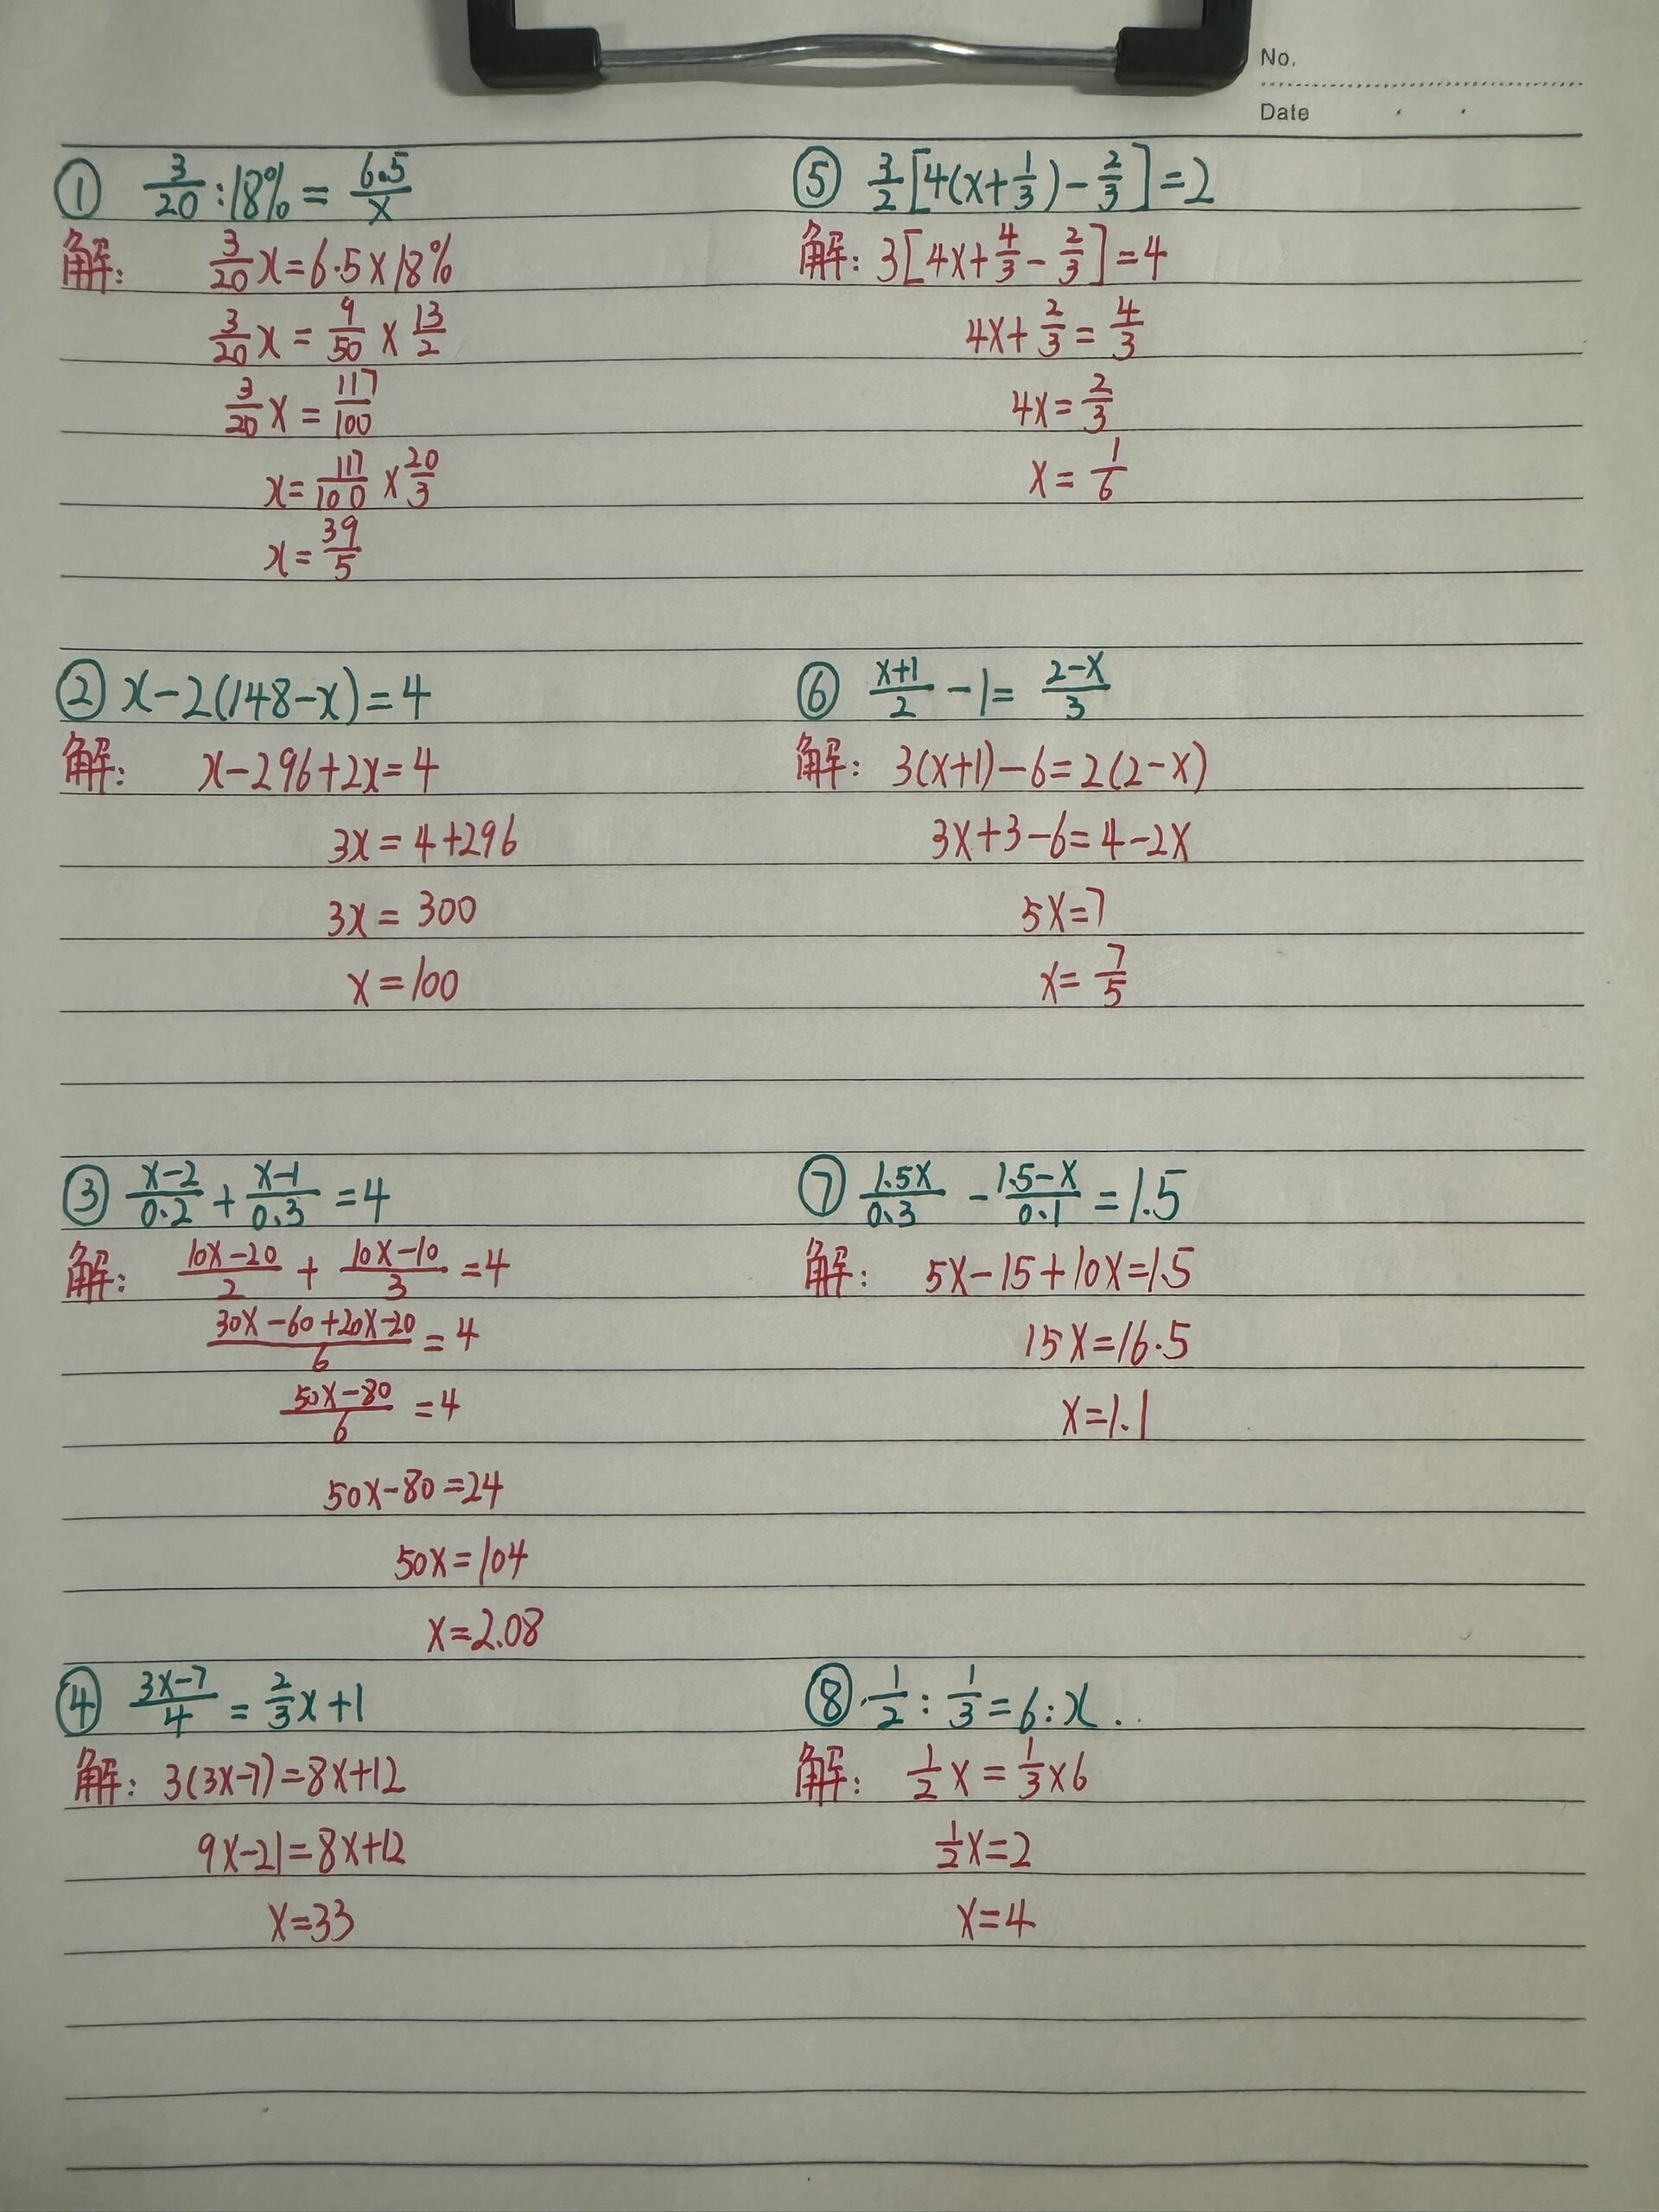 No.
Date
① 3/20 : 18% = 6.5/x
解: 3/20 x = 6.5 × 18%
3/20 x = 9/50 × 13/2
3/20 x = 117/100
x = 117/100 × 20/3
x = 39/5
② x-2(148-x)=4
解: x-296+2x=4
3x=4+296
3x=300
x=100
③ (x-2)/0.2 + (x-1)/0.3 = 4
解: (10x-20)/2 + (10x-10)/3 = 4
(30x-60+20x-20)/6 = 4
(50x-80)/6 = 4
50x-80=24
50x=104
x=2.08
④ (3x-7)/4 = 2/3 x+1
解: 3(3x-7)=8x+12
9x-21=8x+12
x=33
⑤ 3/2[4(x+1/3)-2/3]=2
解: 3[4x+4/3-2/3]=4
4x+2/3=4/3
4x=2/3
x=1/6
⑥ (x+1)/2 -1= (2-x)/3
解: 3(x+1)-6=2(2-x)
3x+3-6=4-2x
5x=7
x=7/5
⑦ 1.5x/0.3 - (1.5-x)/0.1 = 1.5
解: 5x-15+10x=1.5
15x=16.5
x=1.1
⑧ 1/2 : 1/3 = 6:x
解: 1/2 x = 1/3 × 6
1/2 x=2
x=4